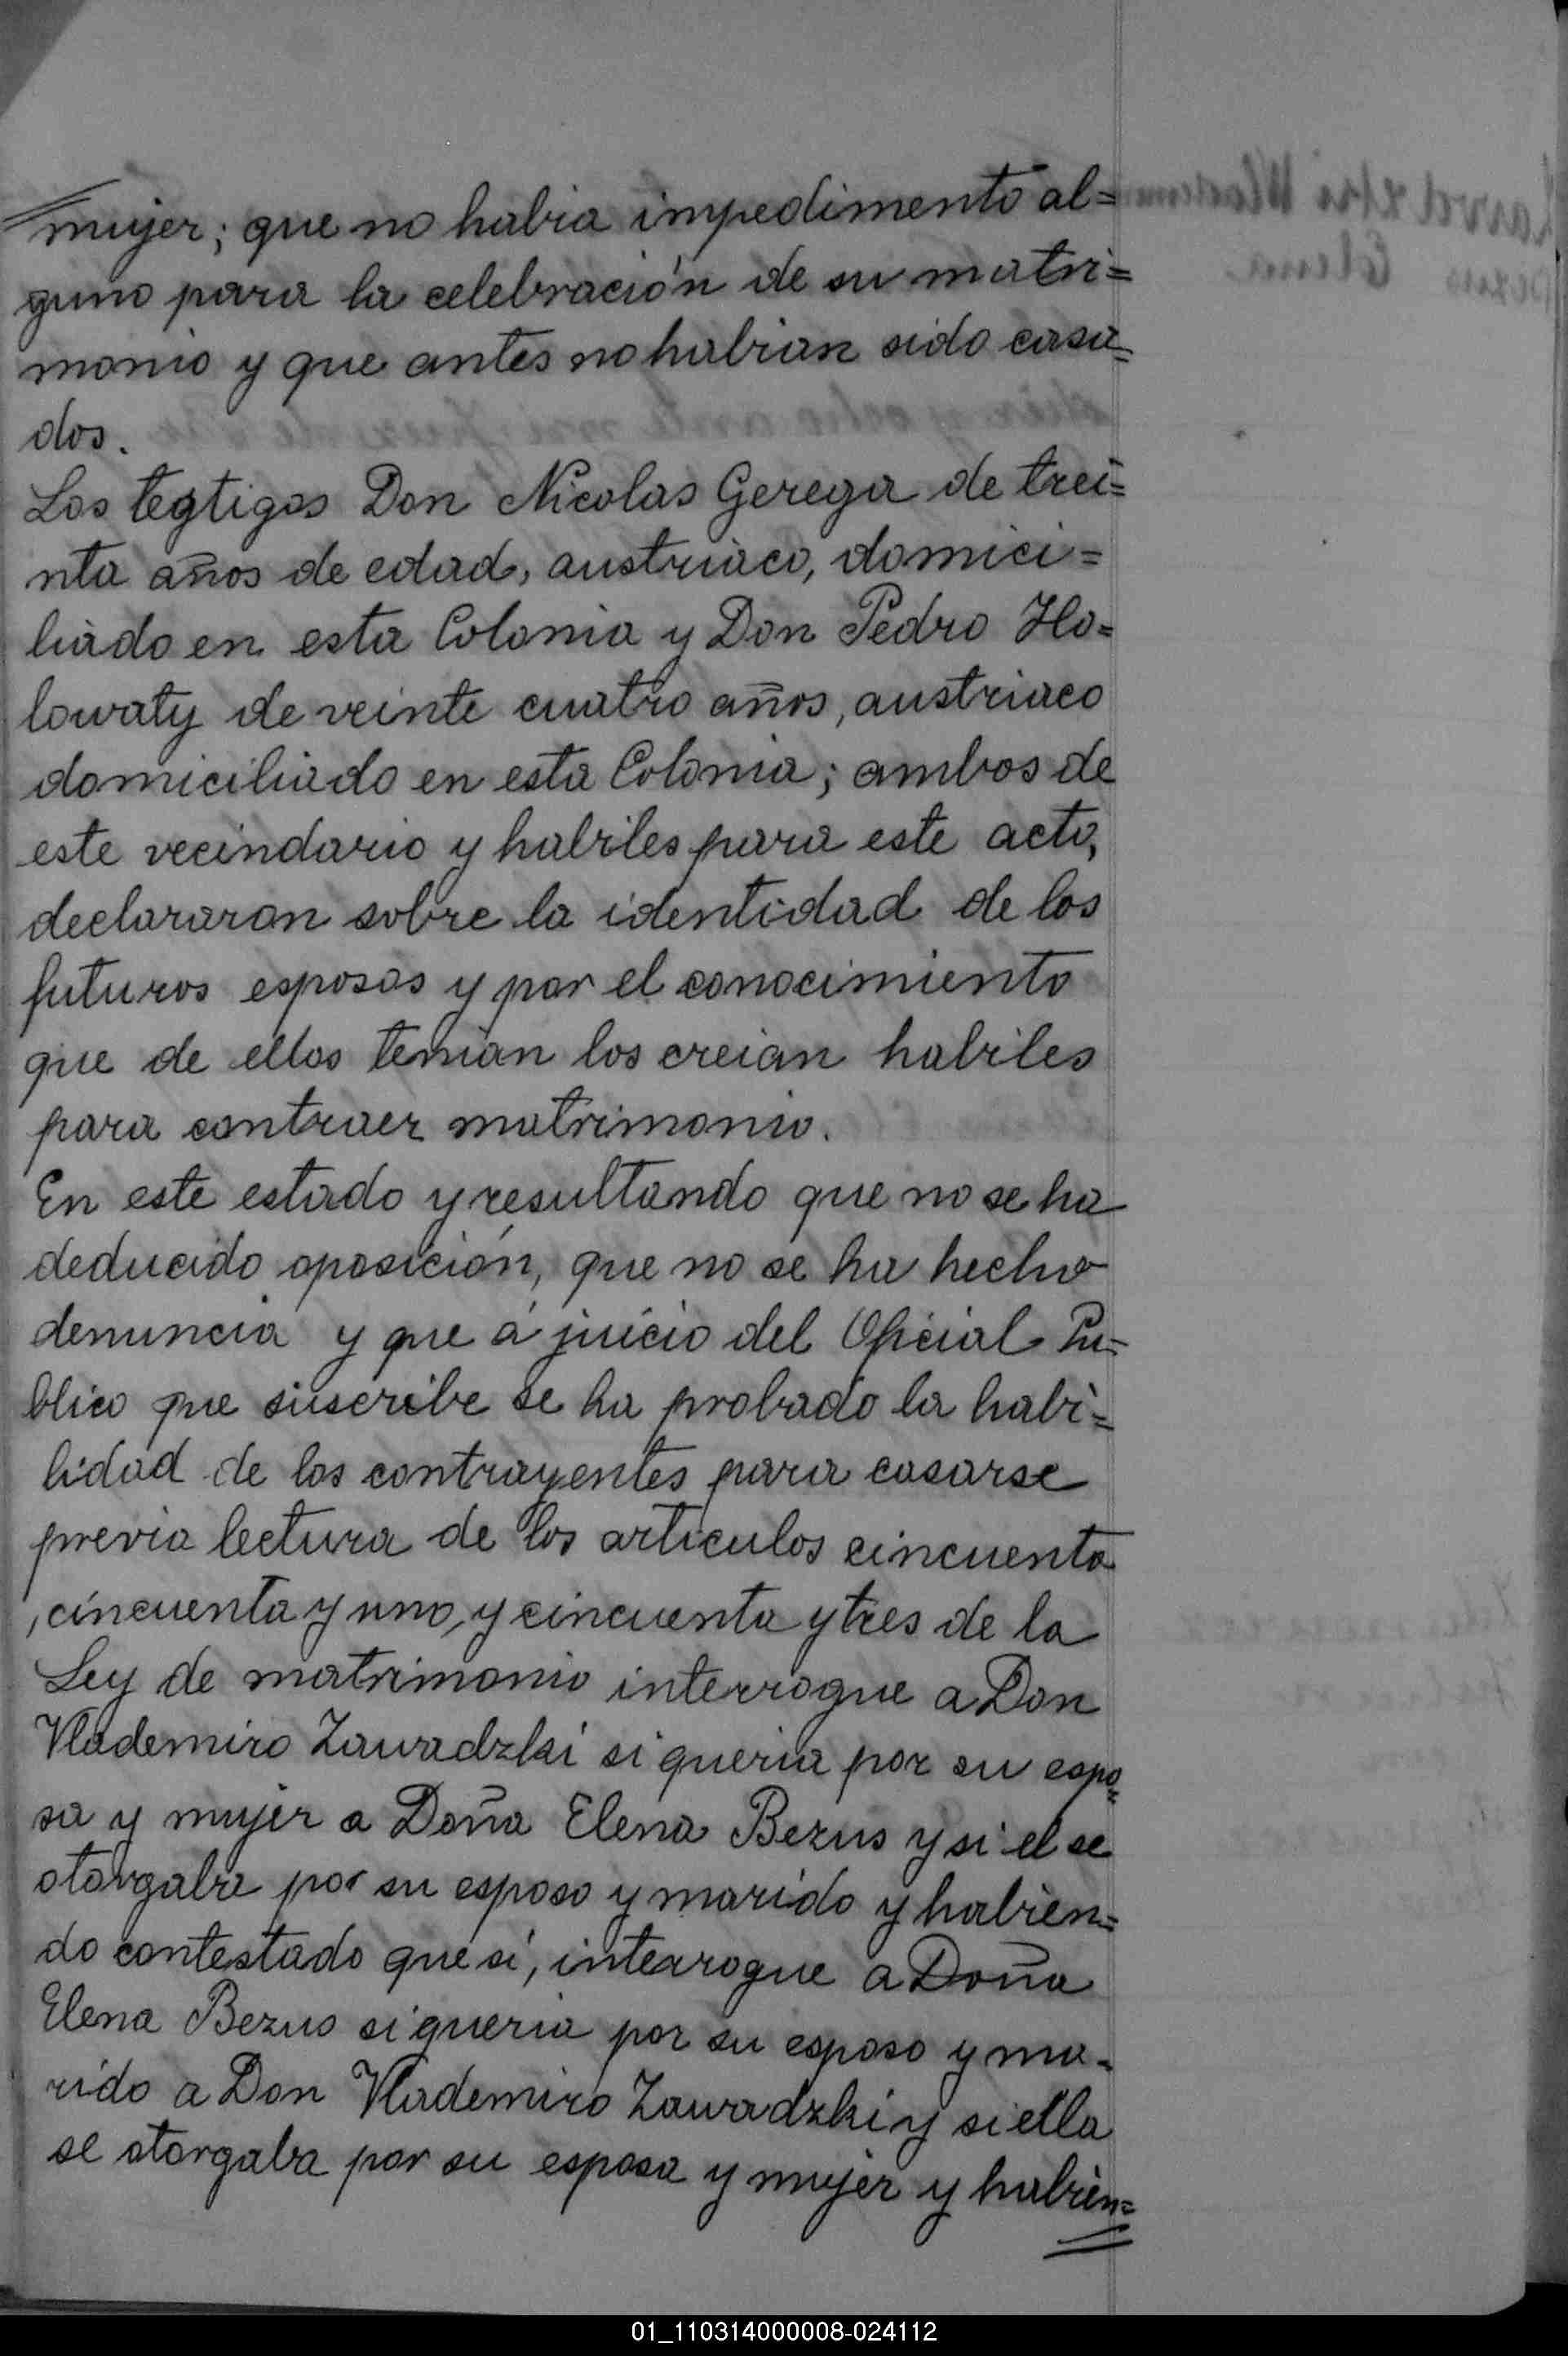 mujer; que no habia impedimento al=
guno para la celebración de su matri=
monio y que antes no habian sido casa=
dos.
Los tegtigos Don Nicolas Gerega de trei=
nta años de edad, austriaco, domici=
liado en esta Colonia y Don Pedro Ho=
lowaty de veinte cuatro años, austriaco
domiciliado en esta Colonia; ambos de
este vecindario y habiles para este acto,
declararon sobre la identidad de los
futuros esposos y por el conocimiento
que de ellos tenian los creian habiles
para contraer matrimonio.
En este estado y resultando que no se ha
deducido oposición, que no se ha hecho
denuncia y que á juicio del Oficial Pu=
blico que suscribe se ha probado la habi=
lidad de los contrayentes para casarse
previa lectura de los articulos cincuenta
, cincuenta y uno, y cincuenta y tres de la
Ley de matrimonio interrogue a Don
Vlademiro Zawadzki si queria por su espo=
sa y mujer a Doña Elena Bezus y si el se
otorgaba por su esposo y marido y habien=
do contestado que sí, interrogue a Doña
Elena Bezus si queria por su esposo y ma=
rido a Don Vlademiro Zawadzki y si ella
se otorgaba por su esposa y mujer y habien=
01_110314000008-024112